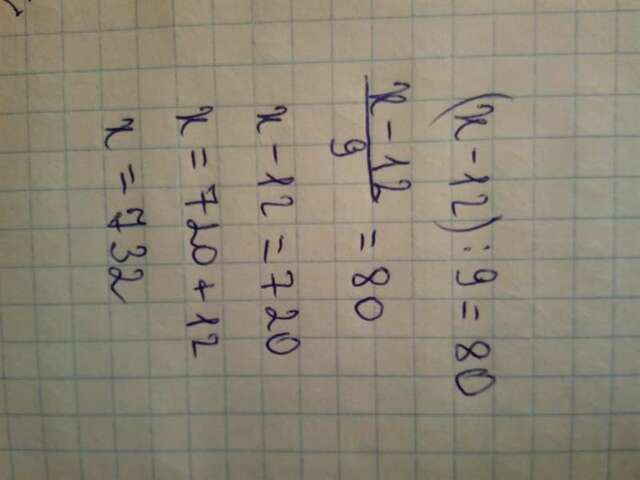 (x - 12) : 9 = 80
x - 12
9
= 80
x - 12 = 720
x = 720 + 12
x = 732